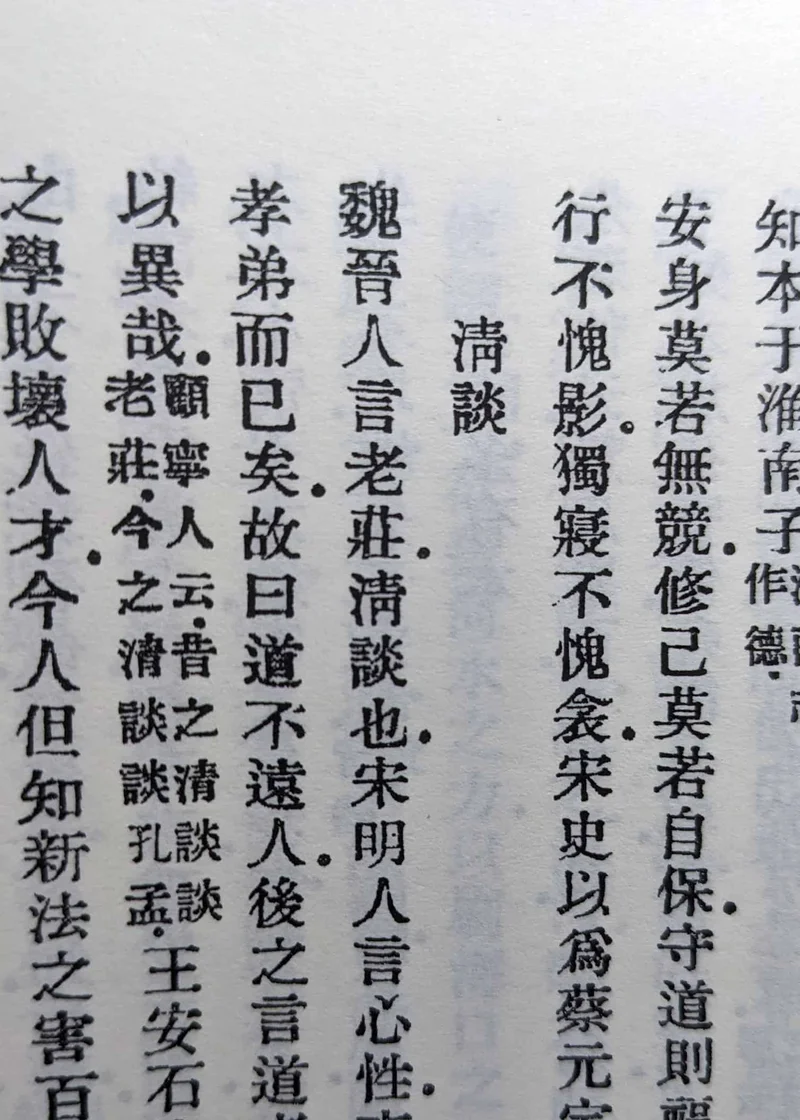 知本于淮南子
作德．
安身莫若無競。修己莫若自保。守道則
行不愧影。獨寢不愧衾。宋史以爲蔡元
清談
魏晉人言老莊。清談也。宋明人言心性。
孝弟而已矣。故曰道不遠人。後之言道
以異哉。
顧寧人云．昔之清談談
老莊．今之清談談孔孟．
王安石
之學敗壞人才。今人但知新法之害百